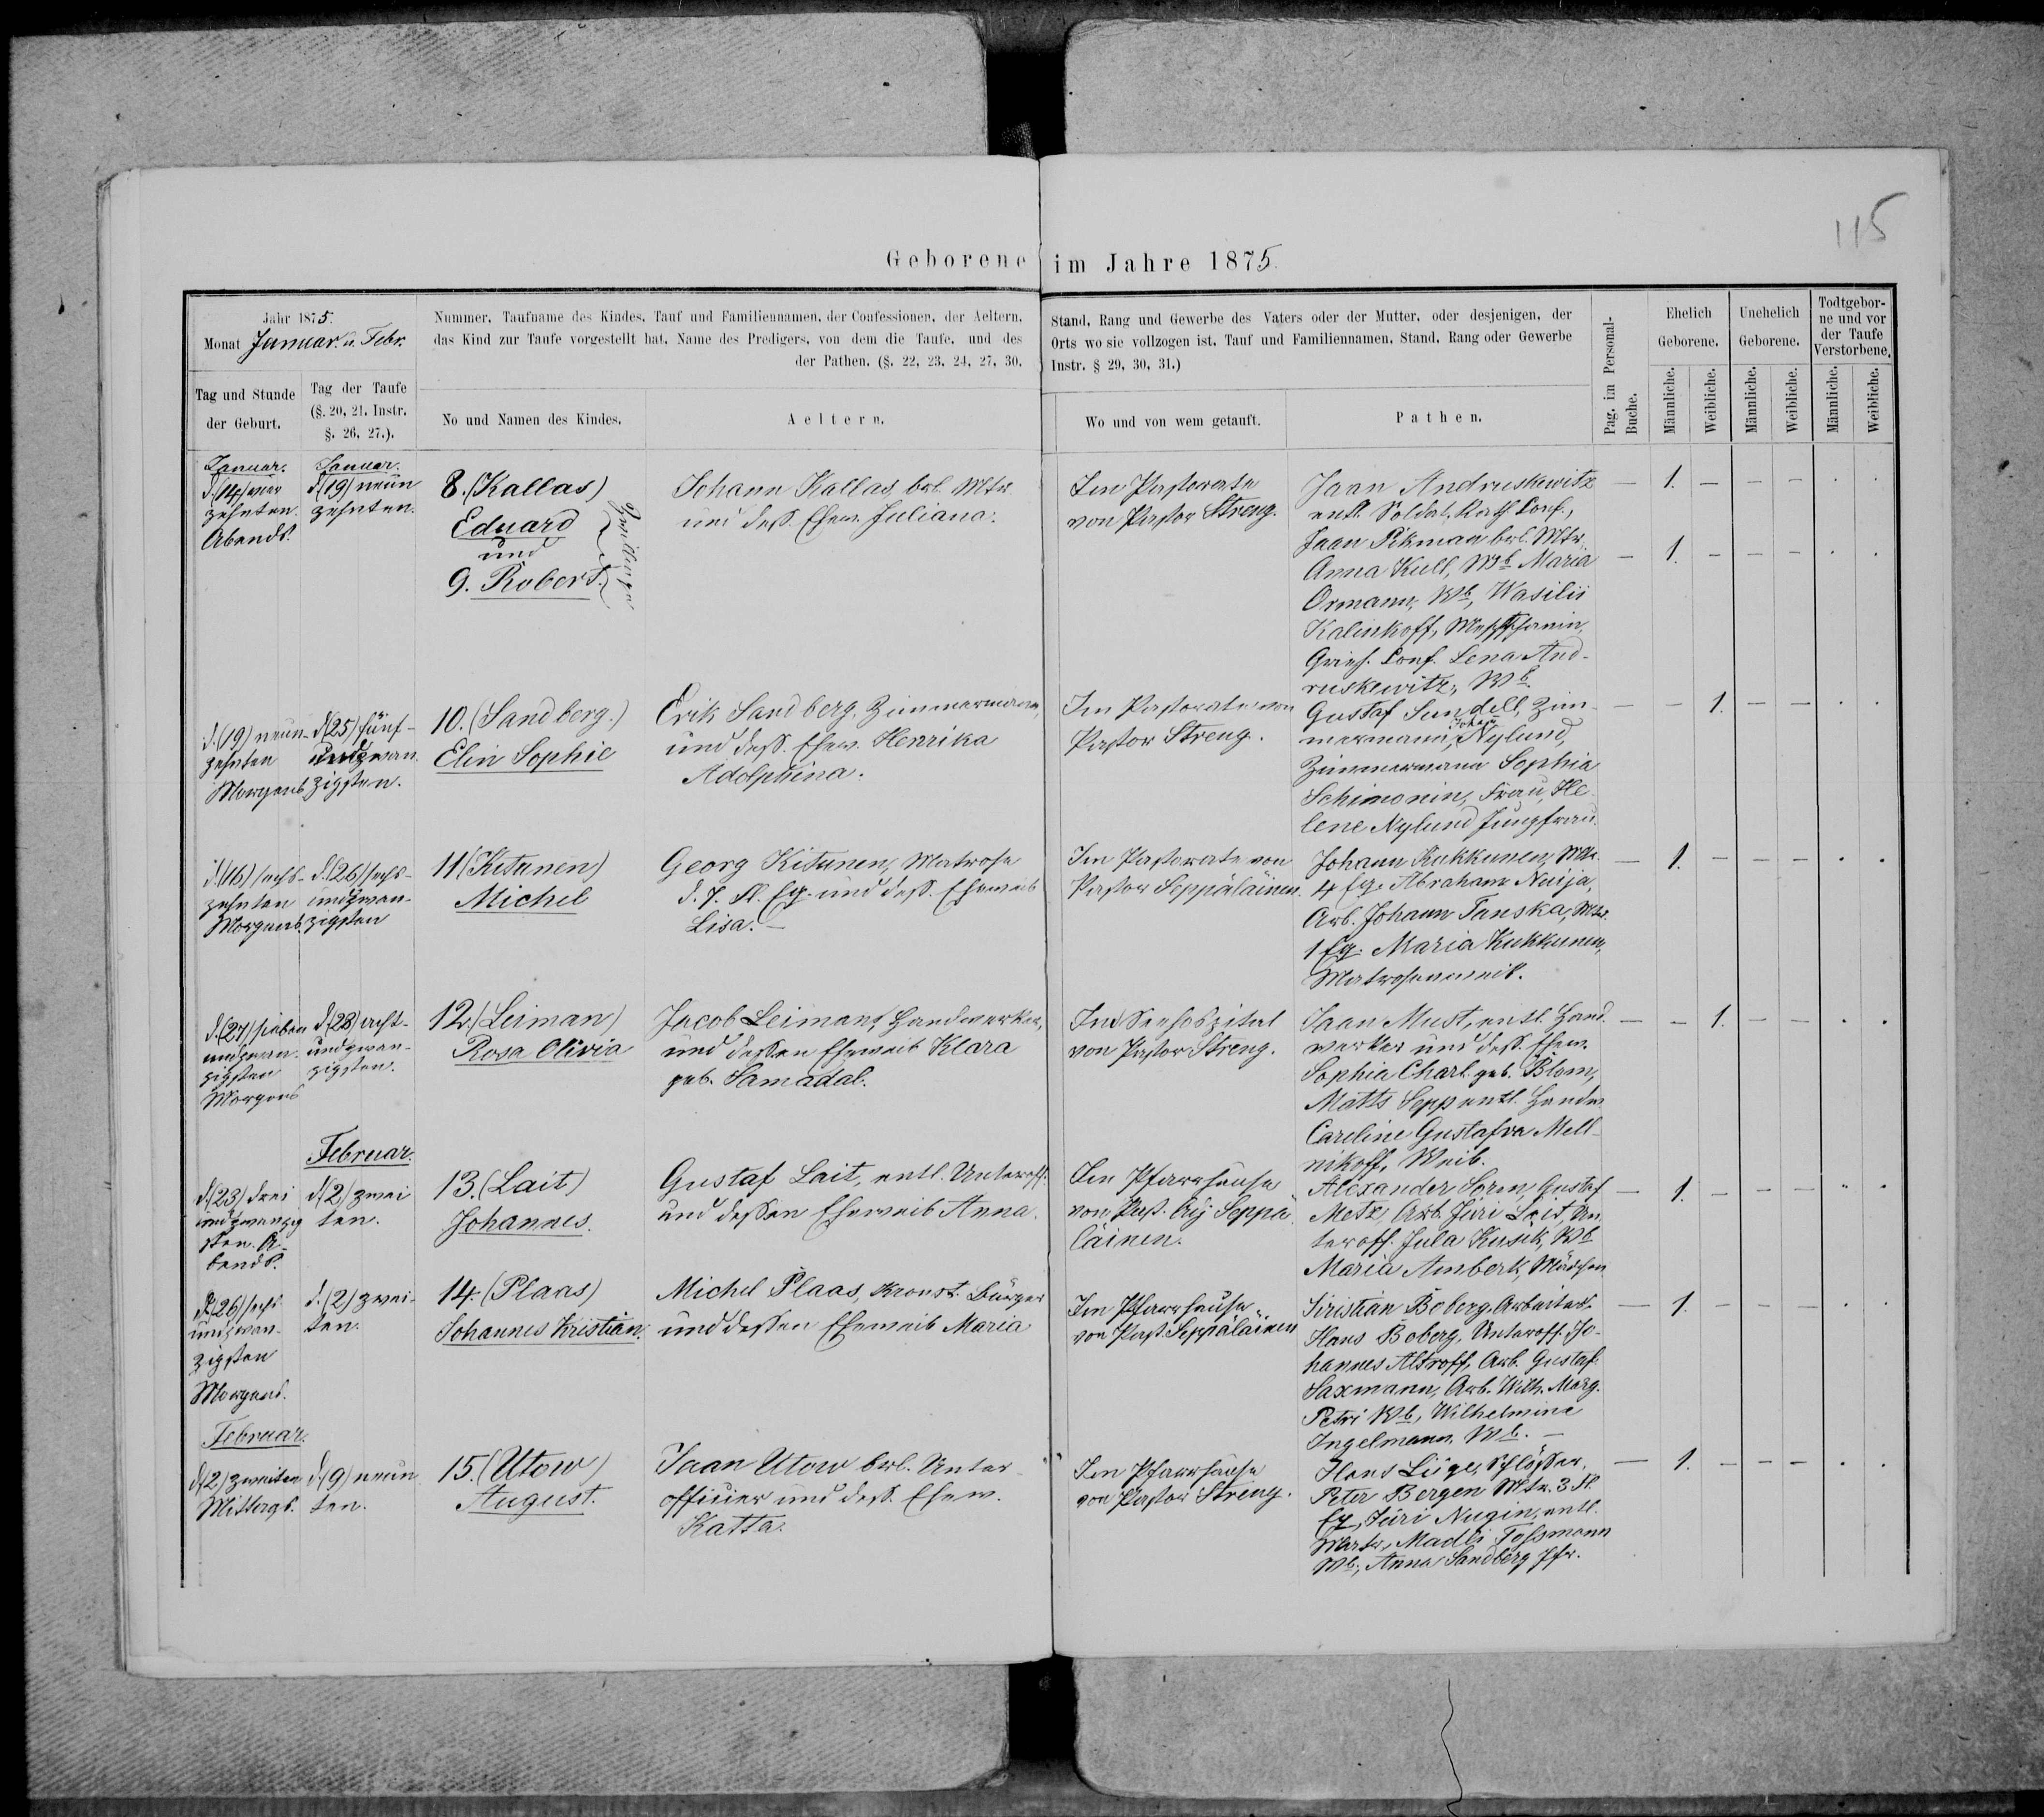 115
Geborene im Jahre 1875.
Jahr 1875.
Monat Januar. u. Febr.
Nummer, Taufname des Kindes, Tauf und Familiennamen, der Confessionen, der Aeltern,
das Kind zur Taufe vorgestellt hat, Name des Predigers, von dem die Taufe, und des
der Pathen. (§. 22, 23, 24, 27, 30,
Stand, Rang und Gewerbe des Vaters oder der Mutter, oder desjenigen, der
Orts wo sie vollzogen ist, Tauf und Familiennamen, Stand, Rang oder Gewerbe
Instr. § 29, 30, 31.)
Pag. im Personal-
Buche.
Ehelich
Geborene.
Unehelich
Geborene.
Todtgebor-
ne und vor
der Taufe
Verstorbene.
Tag und Stunde
der Geburt.
Tag der Taufe
(§. 20, 21. Instr.
§. 26, 27.).
No und Namen des Kindes.
Aeltern.
Wo und von wem getauft.
Pathen.
Männliche.
Weibliche.
Männliche.
Weibliche.
Männliche.
Weibliche.
Januar.
d. (14) vier
zehnten.
Abends.
Januar.
d. (19) neun
zehnten.
8. (Kallas)
Eduard
und
9. Robert.
Zwillinge
Johann Kallas, brl. Mtr.
und dess. Ehew. Juliana.
Im Pastorate
von Pastor Streng.
Jaan Andruskewitz
entl. Soldat, Kath Conf.,
Jaan Pikman brl. Mtr.
Anna Kull, Wb Maria
Ormann, Wb, Wasilii
Kalinkoff, Mestschanin,
Griech. Conf. Lena And-
ruskewitz, Wb.
— 1. — — — . .
— 1. — — — . .
d. (19) neun-
zehnten
Morgens
d. (25) fünf-
undzwan
zigsten.
10. (Sandberg.)
Elin Sophie
Erik Sandberg, Zimmermann,
und dess. Ehew. Henrika
Adolphina.
Im Pastorate von
Pastor Streng.
Gustaf Sundell, Zim-
mermann, Johan Nylund,
Zimmermann Sophia
Schimonin, Frau, He
lene Nylund Jungfrau.
— — 1. — — . .
d. (16) sechs-
zehnten
Morgens.
d. (26) sechs-
undzwan-
zigsten
11 (Kitunen)
Michel
Georg Kitunen, Matrose
d. 7. Fl. Eq. und dess. Eheweib
Lisa. —
Im Pastorate von
Pastor Seppäläinen.
Johann Kukkunen, Mtr.
4 Eq. Abraham Nuija,
Arb. Johann Tanska, Mtr.
1 Eq. Maria Kukkunen,
Matrosenweib.
— 1. — — — . .
d. (27) sieben
undzwan-
zigsten
Morgens
d. (28) acht-
undzwan-
zigsten.
12. (Leiman)
Rosa Olivia
Jacob Leimann, Handwerker,
und dessen Eheweib Klara
geb. Samadal.
Im Seehospital
von Pastor Streng.
Jaan Must, entl. Hand
werker und dess. Ehew.
Sophia Charl. geb. Blom,
Matts Sepp entl. Handw.
Careline Gustafva Mell-
nikoff, Weib.
— — 1. — — . .
d. (23) drei
undzwanzig
sten. A-
bends.
Februar.
d. (2) zwei
ten.
13. (Lait)
Johannes.
Gustaf Lait, entl. Unteroff.
und dessen Eheweib Anna.
Im Pfarrhause
von Past. Seppä
läinen.
Alexander Sorm, Gustaf
Metz, Arb. Jüri Lait, Un
teroff. Jula Kusik, Wb
Maria Amberk, Mädchen
— 1. — — — . .
d. (26) sechs
undzwan-
zigsten
Morgens.
d. (2) zwei-
ten.
14. (Plaas)
Johannes Kristian.
Michel Plaas, Kronst. Bürger
und dessen Eheweib Maria
Im Pfarrhause
von Past. Seppäläinen
Kristian Boberg, Arbeiter.
Hans Boberg, Unteroff. Jo-
hannes Altroff, Arb. Gustaf
Saxmann, Arb. Wilh. Marg.
Petri Wb, Wilhelmine
Ingelmann, Wb. —
— 1. — — — . .
Februar.
d. (2.) zweiten
Mittags.
d. (9) neun
ten.
15. (Utow)
August.
Jaan Utow brl. Unter-
officier und dess. Ehew.
Katta.
Im Pfarrhause
von Pastor Streng.
Hans Lüge, Schlosser,
Peter Bergen Mtr. 3 Fl.
Eq, Jüri Nugin, entl.
Matr., Madli Tossmann
Wb., Anna Sandberg Jfr.
— 1. — — — . .